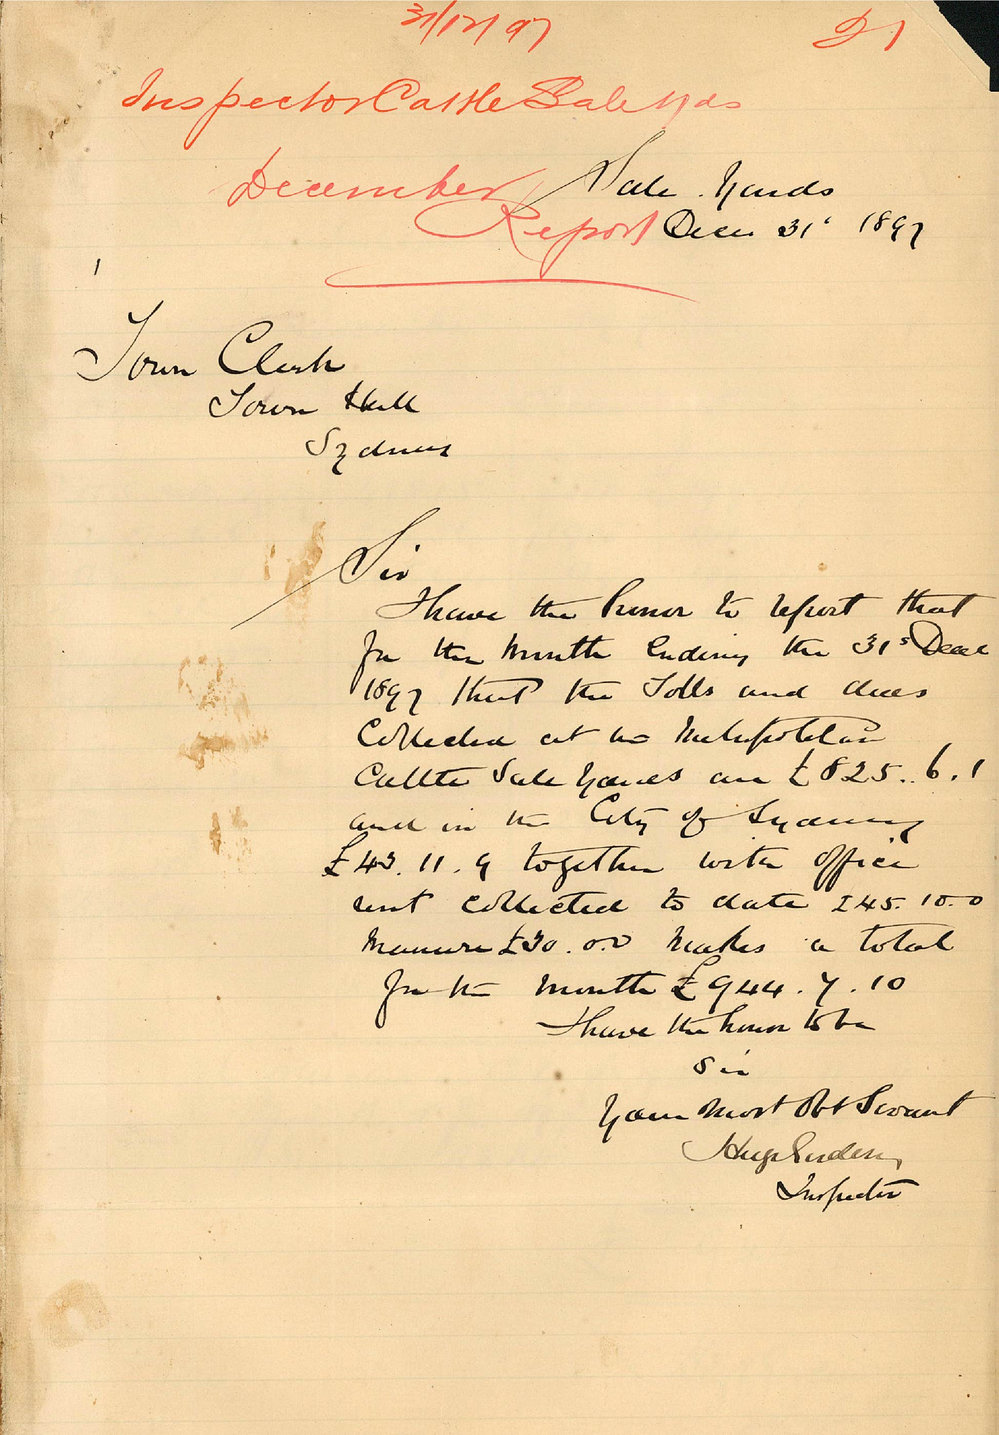 31/12/97
21
Inspector Cattle Sale Yds
December
Report
Sale Yards
Decer 31st 1897
Town Clerk
Town Hall
Sydney
Sir
I have the honor to report that
for the Month Ending the 31s Decr
1897 that the Tolls and dues
Collected at the Metropolitan
Cattle Sale Yards are £825..6.1
and in the City of Sydney
£43.11.9 together with office
rent collected to date £45.10.0
Manure £30.0.0 Makes a total
for the Month £944.7.10
I have the honor to be
Sir
Your Most Obt Servant
Inspector